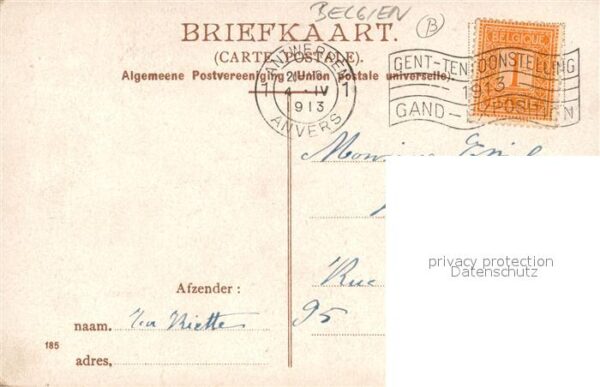 BELGIEN
B
BRIEFKAART.
(CARTE POSTALE).
Algemeene Postvereeniging (Union postale universelle).
ANTWERPEN
1 4 - IV 1
1913
ANVERS
GENT-TENTOONSTELLING
1913
GAND-EXPOSITION
BELGIQUE
1
Rue
95
privacy protection
Datenschutz
Afzender :
naam.
adres,
185